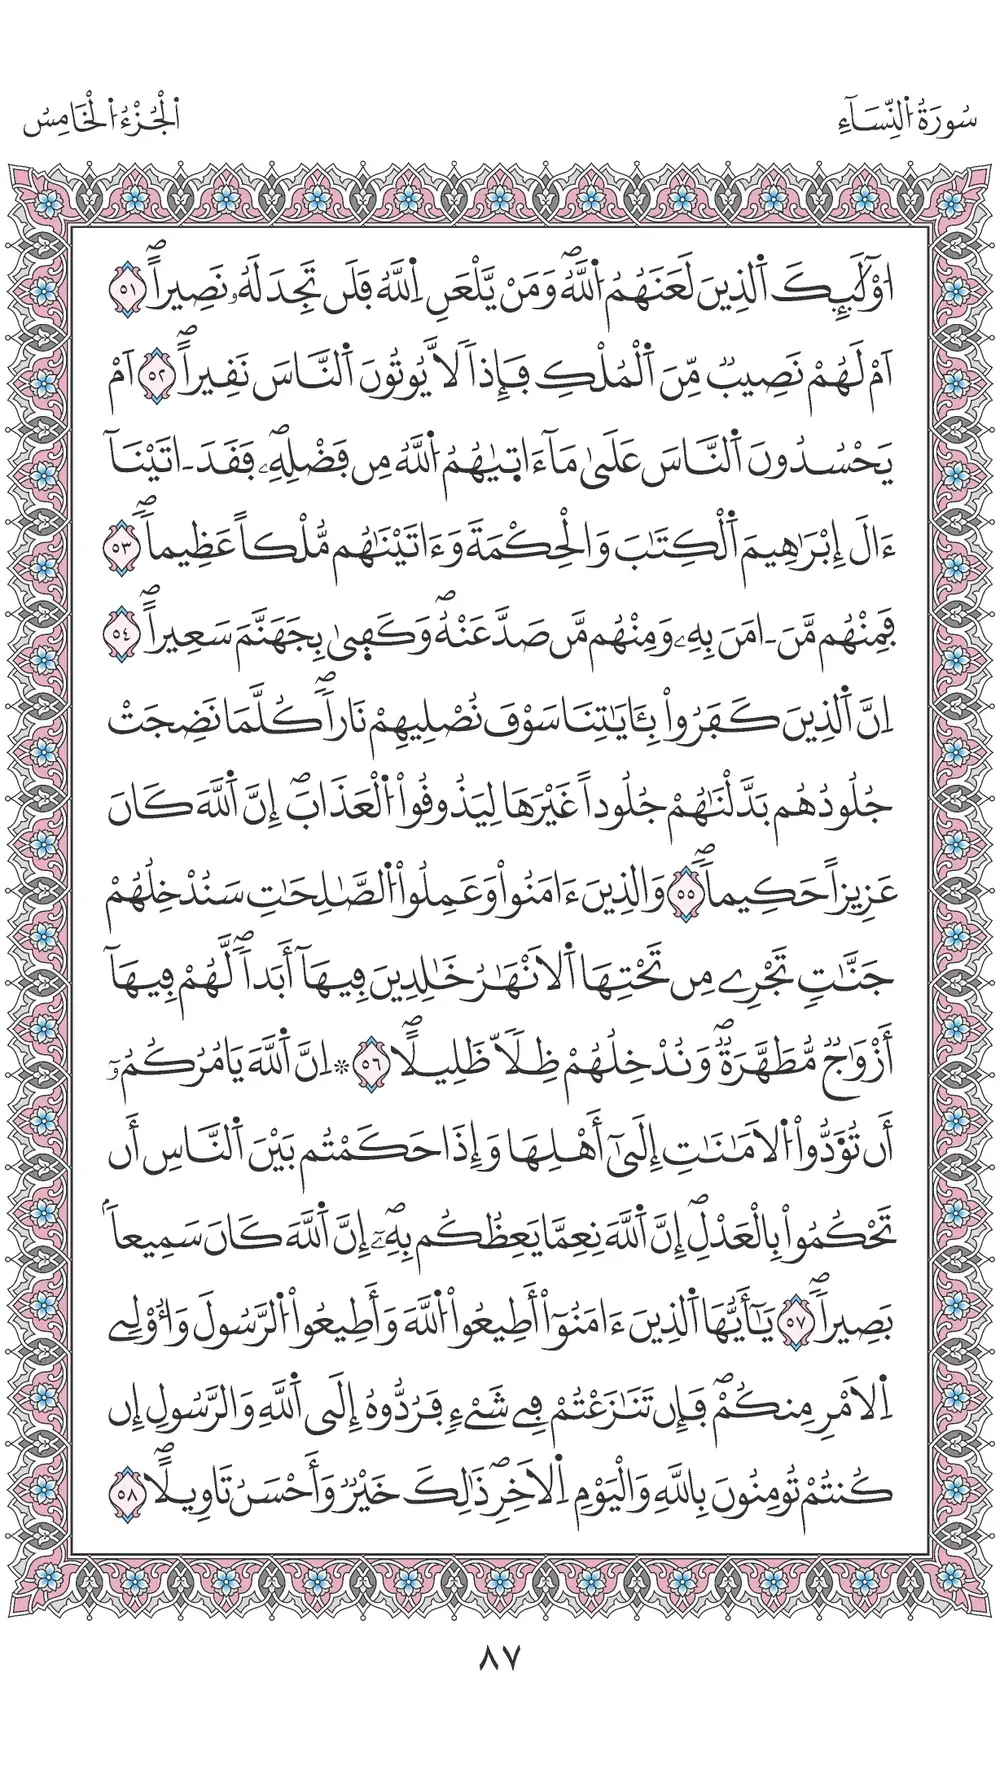 سُورَةُ اُ۬لنِّسَآءِ
اَ۬لْجُزْءُ اُ۬لْخَامِسُ
اُوْلَٰٓئِكَ اَ۬لذِينَ لَعَنَهُمُ اُ۬للَّهُۖ وَمَنْ يَّلْعَنِ اِ۬للَّهُ فَلَن تَجِدَ لَهُۥ نَصِيراًۖ ٥١
اَمْ لَهُمْ نَصِيبٞ مِّنَ اَ۬لْمُلْكِ فَإِذاٗ لَّا يُوتُونَ اَ۬لنَّاسَ نَقِيراًۖ ٥٢ اَمْ
يَحْسُدُونَ اَ۬لنَّاسَ عَلَىٰ مَآ ءَاتٜيٰهُمُ اُ۬للَّهُ مِن فَضْلِهِۦۖ فَقَدَ اٰتَيْنَآ
ءَالَ إِبْرَٰهِيمَ اَ۬لْكِتَٰبَ وَالْحِكْمَةَ وَءَاتَيْنَٰهُم مُّلْكاً عَظِيماًۖ ٥٣
فَمِنْهُم مَّنَ اٰمَنَ بِهِۦ وَمِنْهُم مَّن صَدَّ عَنْهُۖ وَكَفٜيٰ بِجَهَنَّمَ سَعِيراًۖ ٥٤
اِنَّ اَ۬لذِينَ كَفَرُواْ بِـَٔايَٰتِنَا سَوْفَ نُصْلِيهِمْ نَاراٗۖ كُلَّمَا نَضِجَتْ
جُلُودُهُم بَدَّلْنَٰهُمْ جُلُوداً غَيْرَهَا لِيَذُوقُواْ اُ۬لْعَذَابَۖ إِنَّ اَ۬للَّهَ كَانَ
عَزِيزاً حَكِيماٗۖ ٥٥ وَالذِينَ ءَامَنُواْ وَعَمِلُواْ اُ۬لصَّٰلِحَٰتِ سَنُدْخِلُهُمْ
جَنَّٰتٖ تَجْرِے مِن تَحْتِهَا اَ۬لَانْهَٰرُ خَٰلِدِينَ فِيهَآ أَبَداٗۖ لَّهُمْ فِيهَآ
أَزْوَٰجٞ مُّطَهَّرَةٞۖ وَنُدْخِلُهُمْ ظِلّاٗ ظَلِيلاًۖ ٥٦ ۞ اِنَّ اَ۬للَّهَ يَامُرُكُمُۥٓ
أَن تُؤَدُّواْ اُ۬لَامَٰنَٰتِ إِلَىٰٓ أَهْلِهَا وَإِذَا حَكَمْتُم بَيْنَ اَ۬لنَّاسِ أَن
تَحْكُمُواْ بِالْعَدْلِۖ إِنَّ اَ۬للَّهَ نِعِمَّا يَعِظُكُم بِهِۦٓۖ إِنَّ اَ۬للَّهَ كَانَ سَمِيعاَۢ
بَصِيراٗۖ ٥٧ يَٰٓأَيُّهَا اَ۬لذِينَ ءَامَنُوٓاْ أَطِيعُواْ اُ۬للَّهَ وَأَطِيعُواْ اُ۬لرَّسُولَ وَأُوْلِے
اِ۬لَامْرِ مِنكُمْۖ فَإِن تَنَٰزَعْتُمْ فِے شَےْءٖ فَرُدُّوهُ إِلَى اَ۬للَّهِ وَالرَّسُولِ إِن
كُنتُمْ تُومِنُونَ بِاللَّهِ وَالْيَوْمِ اِ۬لَاخِرِۖ ذَٰلِكَ خَيْرٞ وَأَحْسَنُ تَاوِيلاًۖ ٥٨
٨٧